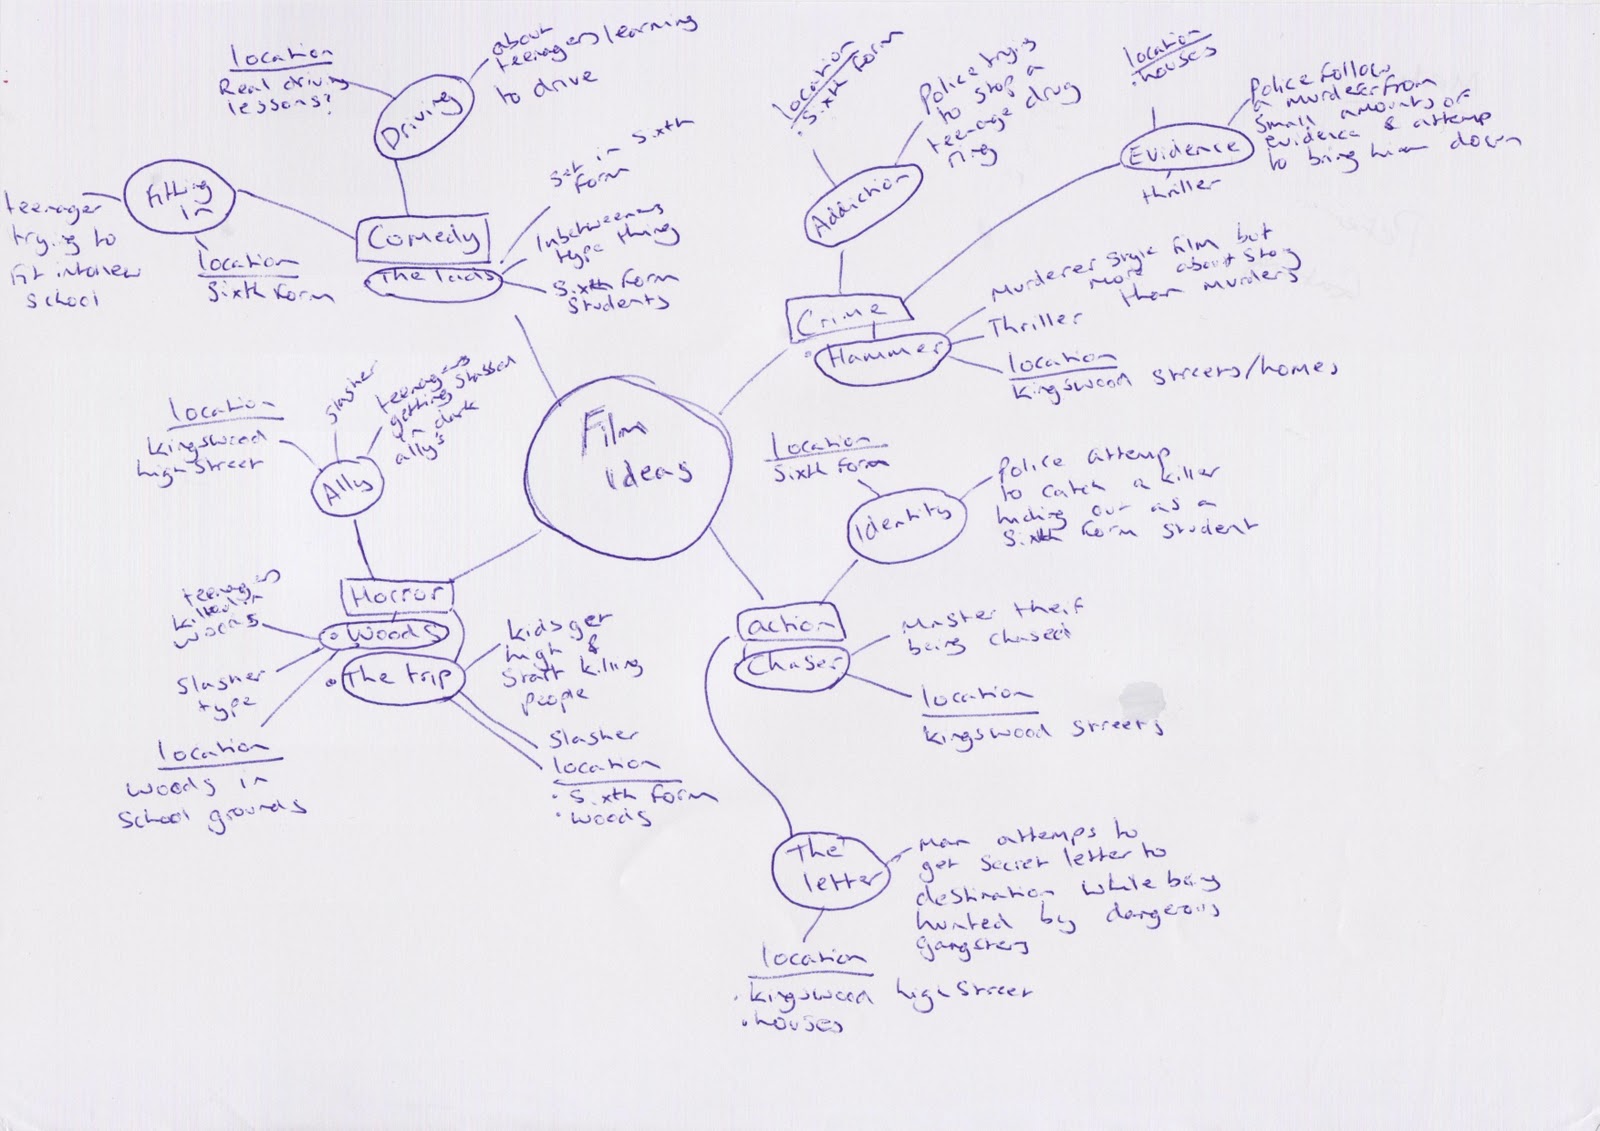 Film
ideas
Comedy
Driving
location
Real driving
lessons?
about
teenagers learning
to drive
Fitting
in
teenager
trying to
fit into new
school
location
Sixth Form
The lads
Set in Sixth
Form
Inbetweeners
type thing
Sixth Form
Students
Crime
Addiction
location
• Sixth Form
Police trying
to stop a
teenage drug
ring
Evidence
location
• houses
Police Follow
a murderer from
Small amounts of
evidence & attemp
to bring him down
thriller
• Hammer
Murderer Style film but
more about Story
than murders
Thriller
location
Kingswood Streets/homes
Horror
Ally
location
Kingswood
high Street
Slasher
teenagers
getting
in dark
ally's
• Woods
teenagers
killed in
woods
Slasher
type
location
Woods in
School grounds
• The trip
kids get
high &
Start killing
people
Slasher
location
• Sixth Form
• Woods
action
Identity
location
Sixth Form
Police attemp
to catch a killer
hiding out as a
Sixth Form Student
Chaser
Master theif
being chased
location
Kingswood Streets
The
letter
Man attemps to
get Secret letter to
destination while being
hunted by dangerous
gangsters
location
• Kingswood high Street
• houses